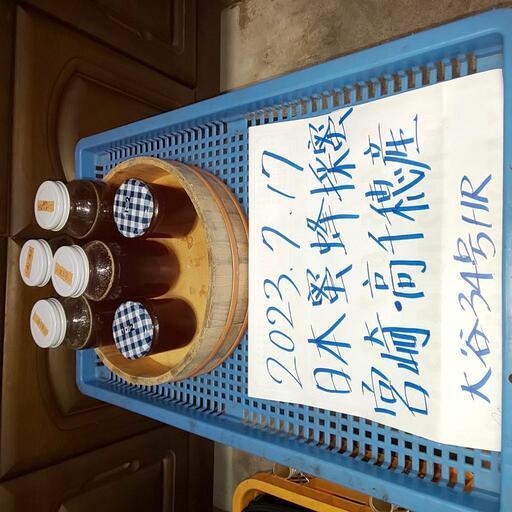 2023.7.17
日本蜜蜂採蜜
宮崎・高千穂産
大谷34号HR